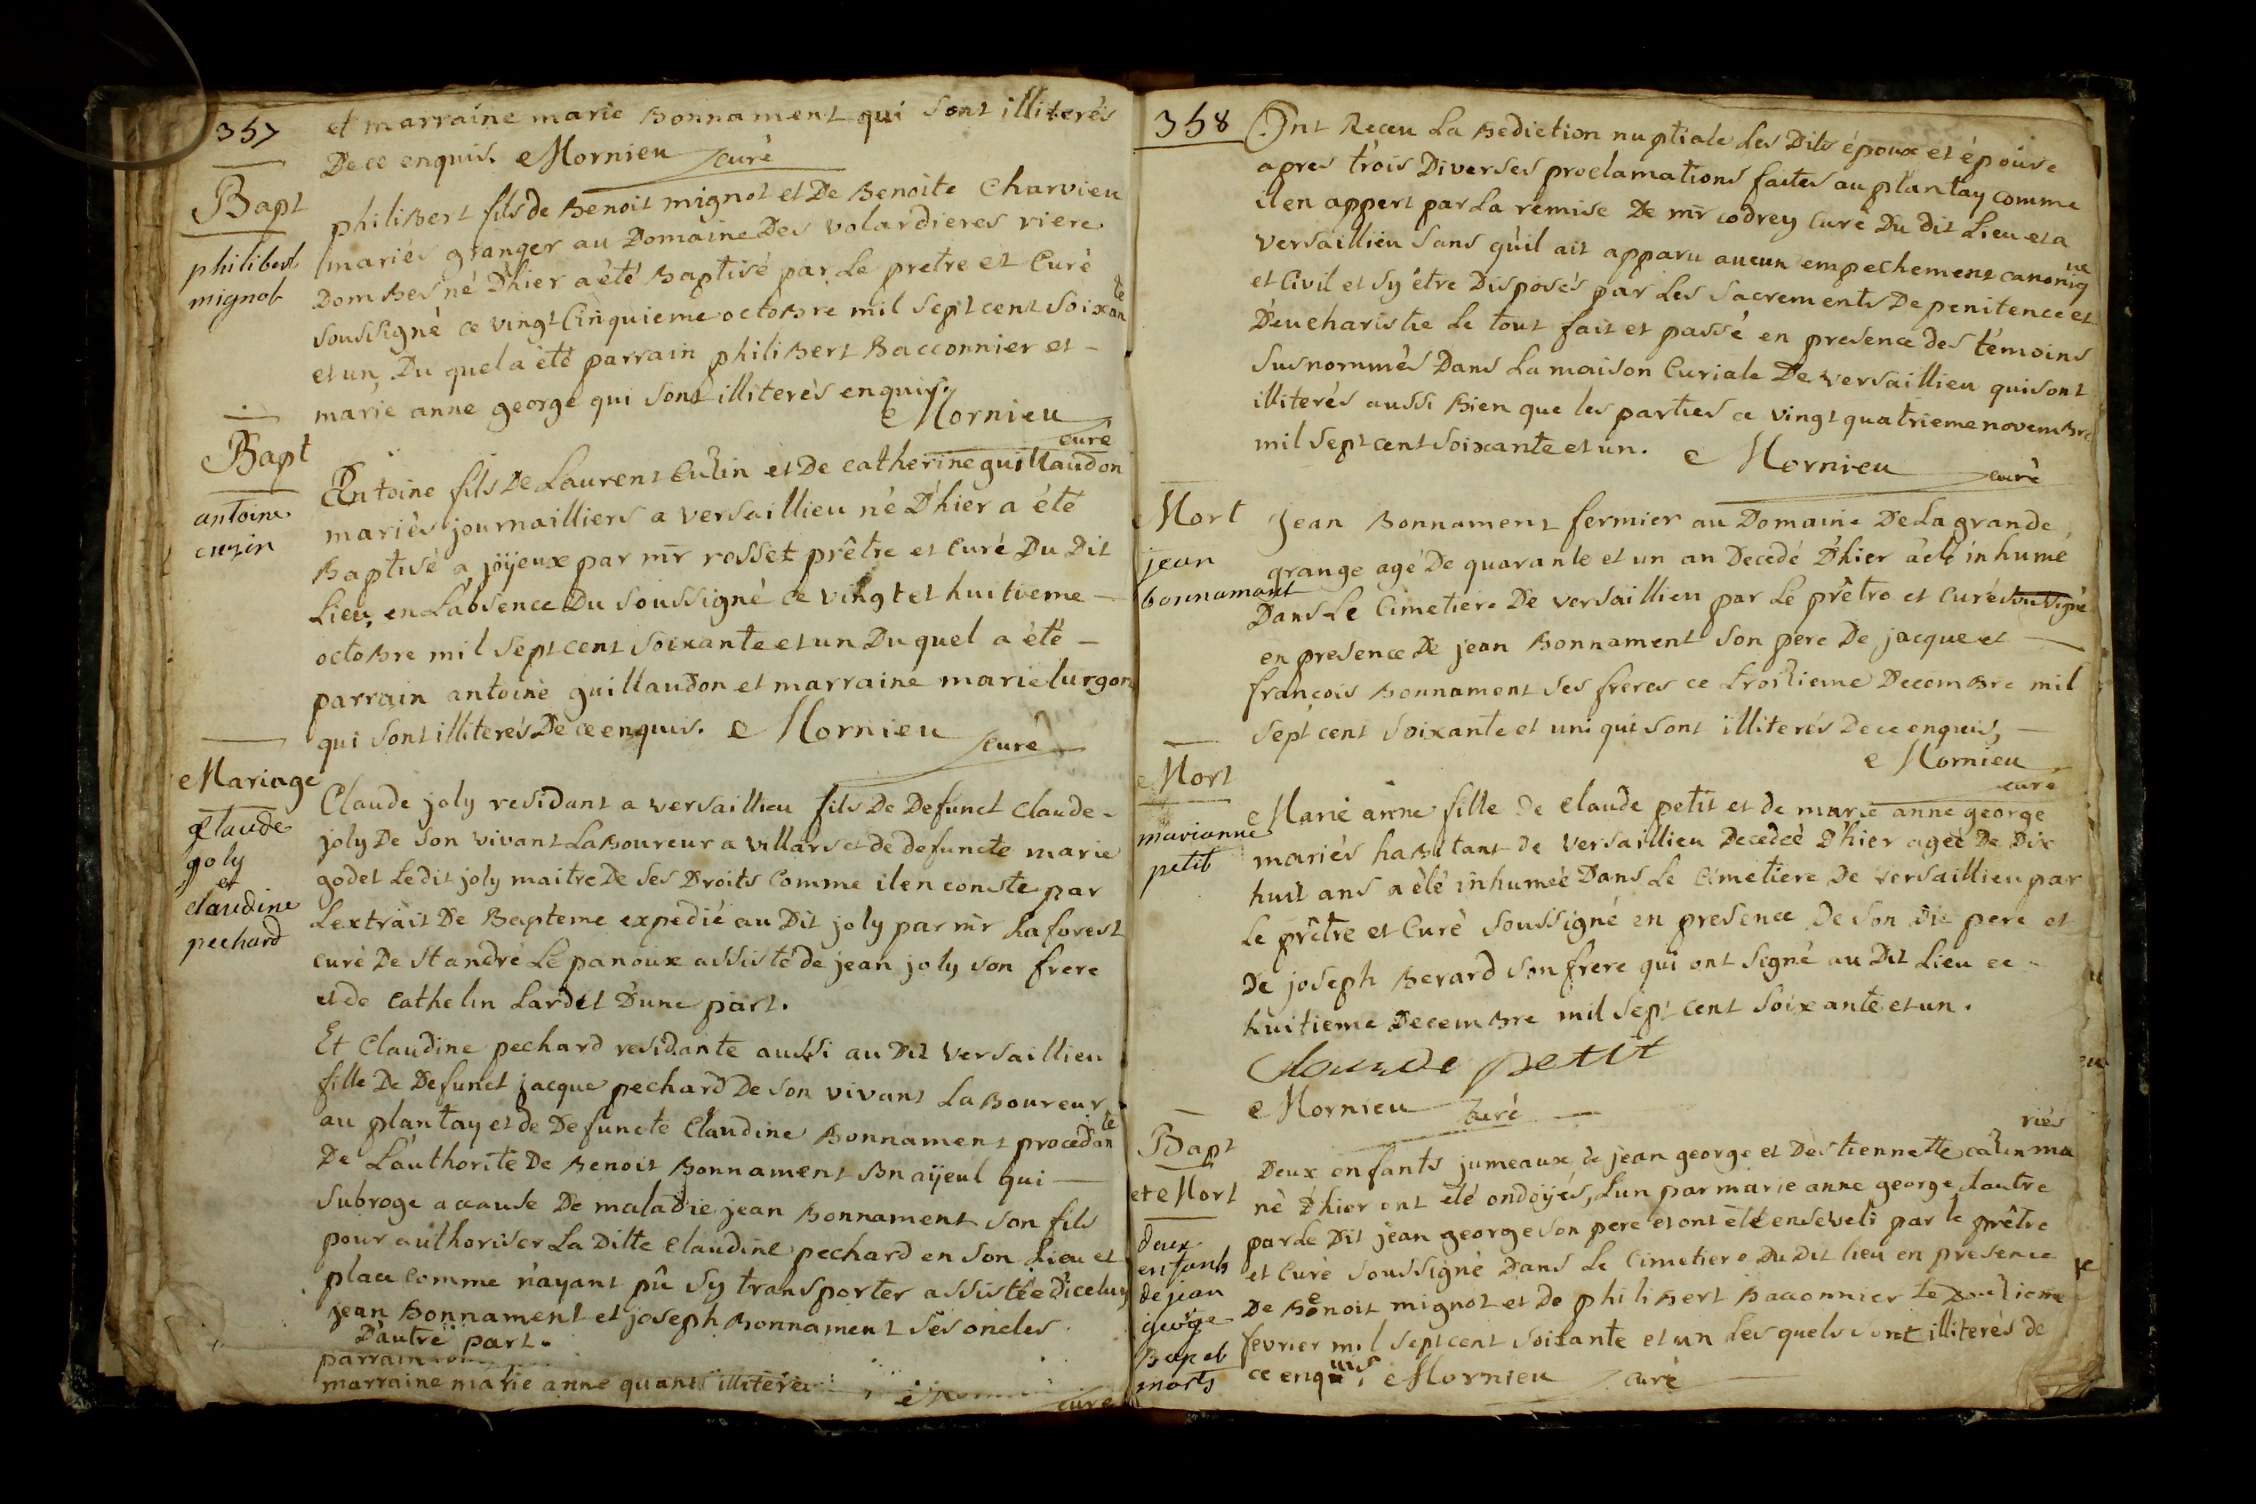 357
et marraine marie Bonnament qui sont illiterés
De ce enquis. Mornieu curé
Bapt
philibert
mignot
philiBert fils de Benoit mignot et De Benoite Charvieu
mariés granger au Domaine Des volardieres riere
DomBes né D'hier a été Baptisé par Le pretre et Curé
soussigné ce vingt Cinquieme octoBre mil sept cent soixante
et un, Du quel a été parrain philiBert Bacconnier et
marie anne george qui sont illiterés enquis.
Mornieu
curé
Bapt
antoine
cuzin
Antoine fils De Laurent Cuzin et De catherine guillaudon
mariés journailliers a versaillieu né D'hier a été
Baptisé a joÿeux par mr rosset prêtre et Curé Du Dit
Lieu, en L'absence Du soussigné ce vingt et huitieme
octoBre mil sept cent soixante et un Du quel a été
parrain antoine guillaudon et marraine marie lurgon
qui sont illiterés De ce enquis. Mornieu curé
Mariage
Claude
joly
et
claudine
pechard
Claude joly residant a versaillieu fils De Defunct Claude
joly De son vivant LaBoureur a villars et de defuncte marie
godet Ledit joly maitre De ses Droits Comme il en conste par
L'extrait De Bapteme expedié au Dit joly par mr Laforest
curé De st andré Le panoux assisté de jean joly son frere
et de Cathelin Lardet D'une part.
Et Claudine pechard residante aussi au Dit versaillieu
fille De Defunct jacque pechard De son vivant LaBoureur
au plantay et de Defuncte Claudine Bonnament procedante
De L'authorité De Benoit Bonnament son aÿeul qui
subroge a cause De maladie jean Bonnament son fils
pour authoriser La Ditte Claudine pechard en son Lieu et
place Comme n'ayant pû sy transporter assistée d'iceluy
jean Bonnament et joseph Bonnament ses oncles
D'autre part.
parrain
marraine marie anne quant illiterés
curé
358
Ont Receu La Bediction nuptiale Les Dits époux et épouse
apres trois Diverses proclamations faites au plantay comme
il en appert par La remise De mr codrey Curé Du dit Lieu et a
versaillieu sans qu'il ait apparu aucun empechement canonique
et Civil et s'y être Disposés par Les sacrements De penitence et
D'eucharistie Le tout fait et passé en presence des témoins
susnommés Dans La maison Curiale De versaillieu qui sont
illiterés aussi Bien que les parties ce vingt quatrieme novemBre
mil sept cent soixante et un. Mornieu
curé
Mort
jean
bonnamant
Jean Bonnament fermier au Domaine De La grande
grange agé De quarante et un an Decedé D'hier a été inhumé
Dans Le Cimetiere De versaillieu par Le prêtre et Curé soussigné
en presence De jean Bonnament son pere De jacque et
françois Bonnament ses freres ce troizieme DecemBre mil
sept cent soixante et un: qui sont illiterés De ce enquis,
Mornieu
curé
Mort
marianne
petit
Marie anne fille de Claude petit et de marie anne george
mariés haBitant de versaillieu Decedeé D'hier ageé De Dix
huit ans a été inhumeé Dans Le Cimetiere De versaillieu par
Le prêtre et Curé soussigné en presence De son dit pere et
De joseph Berard son frere qui ont signé au Dit Lieu ce
huitieme DecemBre mil sept cent soixante et un.
Claude petit
Mornieu curé
Bapt
et Mort
deux
enfants
de jean
george
Bap et
morts
Deux enfants jumeaux de jean george et D'estiennette cazin mariés
né D'hier ont été ondoÿés, L'un par marie anne george L'autre
par Le Dit jean george son pere et ont été enseveli par le prêtre
et Curé soussigné Dans Le Cimetiere Du Dit lieu en presence
De Benoit mignot et De philiBert Bacconnier le
fevrier mil sept cent soixante et un Les quels sont illiterés de
ce enquis. Mornieu curé